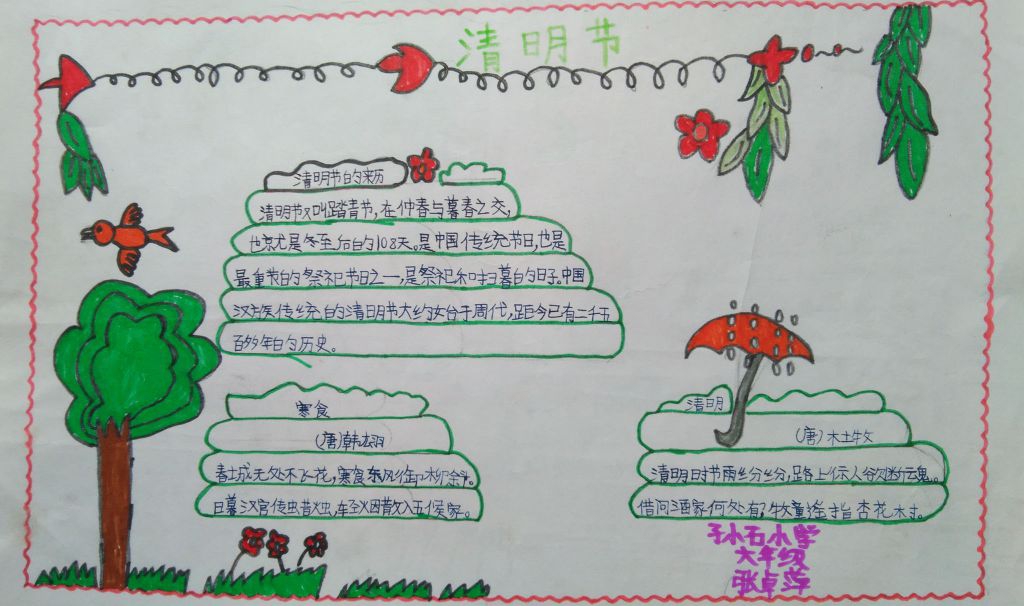 清明节
清明节的来历
清明节又叫踏青节,在仲春与暮春之交,
也就是冬至后的108天。是中国传统节日,也是
最重节的祭祀节日之一,是祭祀和扫暮的日子。中国
汉族传统的清明节大约始于周代,距今已有二千五
百多年的历史。
寒食
(唐)韩翃
春城无处不飞花,寒食东风御柳斜。
日暮汉宫传虫昔火虫,车圣火因散入五侯家。
清明
(唐)杜牧
清明日时节雨纷纷,路上行人欲断魂。
借问酒家何处有?牧童遥指杏花村。
子小石小学
六年级
张卓萍